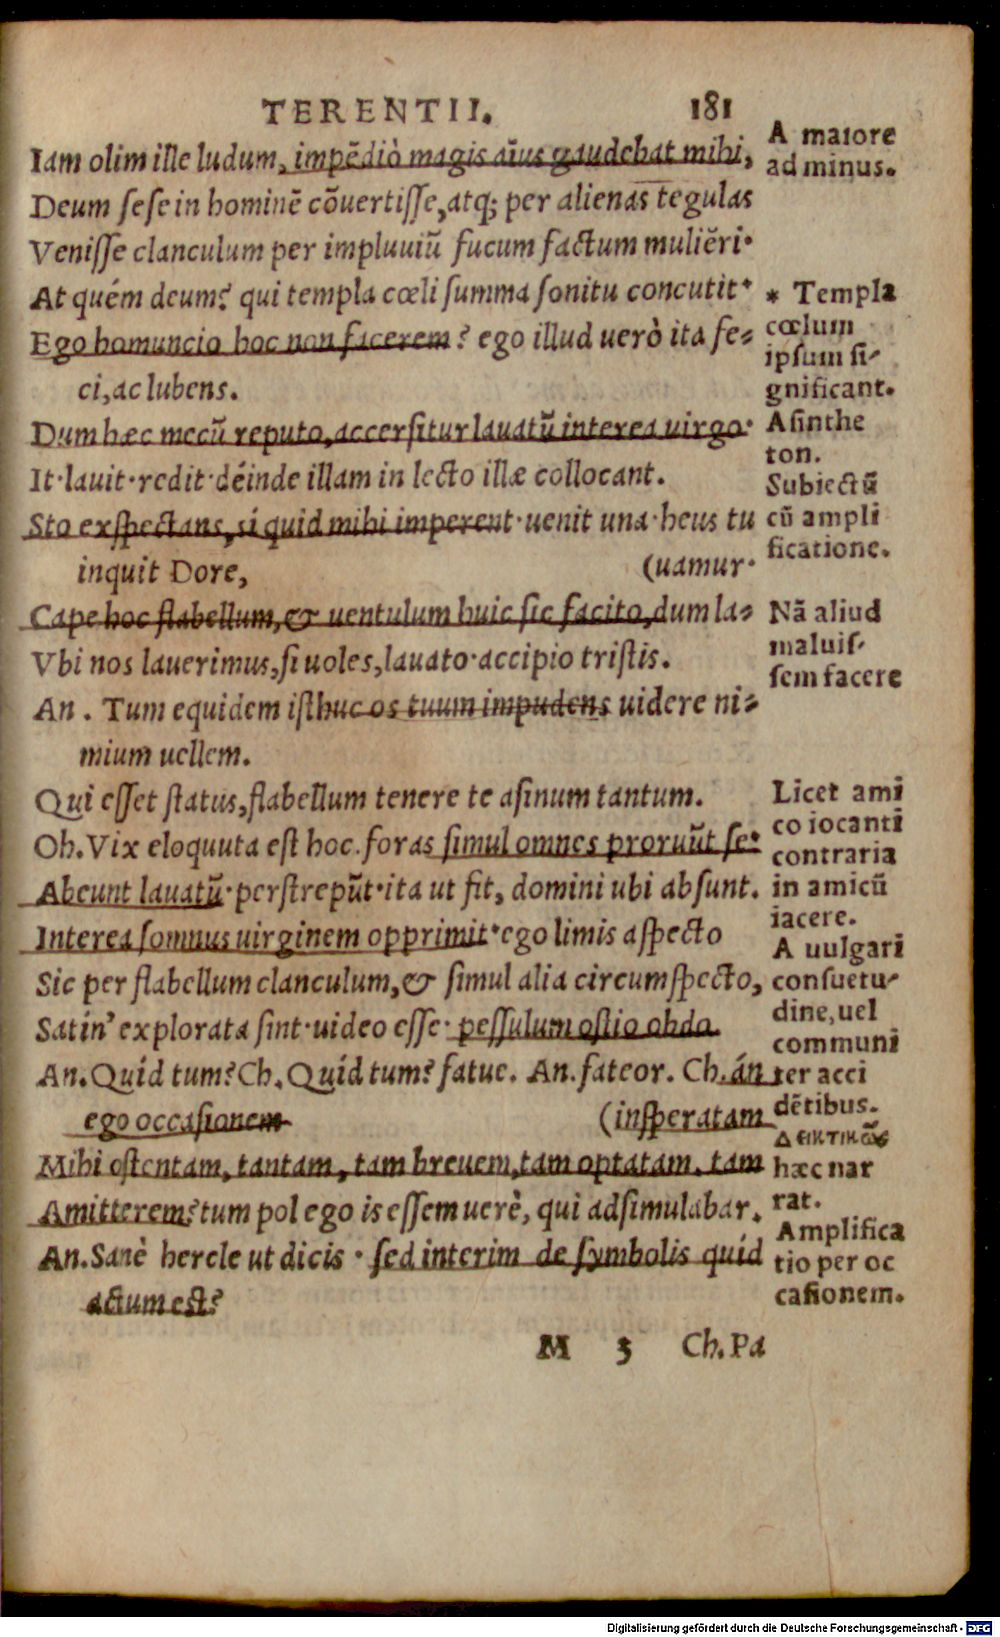 TERENTII. 181
Iam olim ille ludum, impēdiò magis aīus gaudebat mihi,
Deum sese in hominē cōuertisse, atq; per alienas tegulas
Venisse clanculum per impluuiū fucum factum muliēri·
At quém deum? qui templa cœli summa sonitu concutit·
Ego homuncio hoc non facerem? ego illud uerò ita fe-
ci, ac lubens.
Dum hæc mecū reputo, accersitur lauatū interea uirgo·
It·lauit·redit·déinde illam in lecto illæ collocant.
Sto exspectans, sí quid mihi imperent·uenit una·heus tu
inquit Dore, (uamur·
Cape hoc flabellum, & uentulum huic sic facito, dum la-
Vbi nos lauerimus, si uoles, lauato·accipio tristis.
An. Tum equidem isthuc os tuum impudens uidere ni-
mium uellem.
Qui esset status, flabellum tenere te asinum tantum.
Ch. Vix eloquuta est hoc. foras simul omnes proruūt se·
Abeunt lauatū·perstrepūt·ita ut fit, domini ubi absunt.
Interea somnus uirginem opprimit·ego limis aspecto
Sic per flabellum clanculum, & simul alia circumspecto,
Satín' explorata sint·uideo esse·pessulum ostio obdo
An. Quíd tum? Ch. Quíd tum? fatue. An. fateor. Ch. án
ego occasionem (insperatam
Mihi ostentam, tantam, tam breuem, tam optatam, tam
Amitterem? tum pol ego is essem uerè, qui adsimulabar.
An. Sanè hercle ut dicis · sed interim de symbolis quíd
actum est?
M 3 Ch. Pa
A maiore
ad minus.
* Templa
cœlum
ipsum si-
gnificant.
Asinthe
ton.
Subiectū
cū ampli
ficatione.
Nā aliud
maluis-
sem facere
Licet ami
co iocanti
contraria
in amicū
iacere.
A uulgari
consuetu-
dine, uel
communi
ter acci
dētibus.
Δεικτικῶς
hæc nar
rat.
Amplifica
tio per oc
casionem.
Digitalisierung gefördert durch die Deutsche Forschungsgemeinschaft - DFG